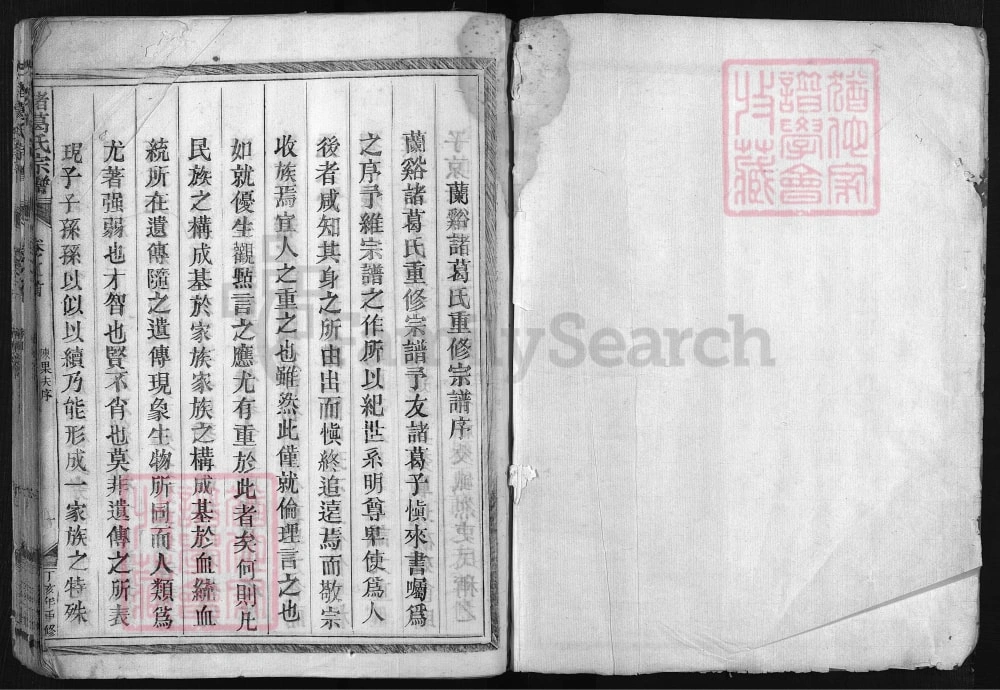 蘭谿諸葛氏重修宗譜序
蘭谿諸葛氏重修宗譜予友諸葛子愼來書囑爲
之序予維宗譜之作所以紀世系明尊卑使爲人
後者咸知其身之所由出而愼終追遠焉而敬宗
收族焉宜人之重之也雖然此僅就倫理言之也
如就優生觀點言之應尤有重於此者矣何則凡
民族之構成基於家族家族之構成基於血統血
統所在遺傳隨之遺傳現象生物所同而人類爲
尤著强弱也才智也賢不肖也莫非遺傳之所表
現子子孫孫以似以續乃能形成一家族之特殊
諸葛氏宗譜
卷之首
陳果夫序
一
丁亥年重修
譜學會
收藏
FamilySearch